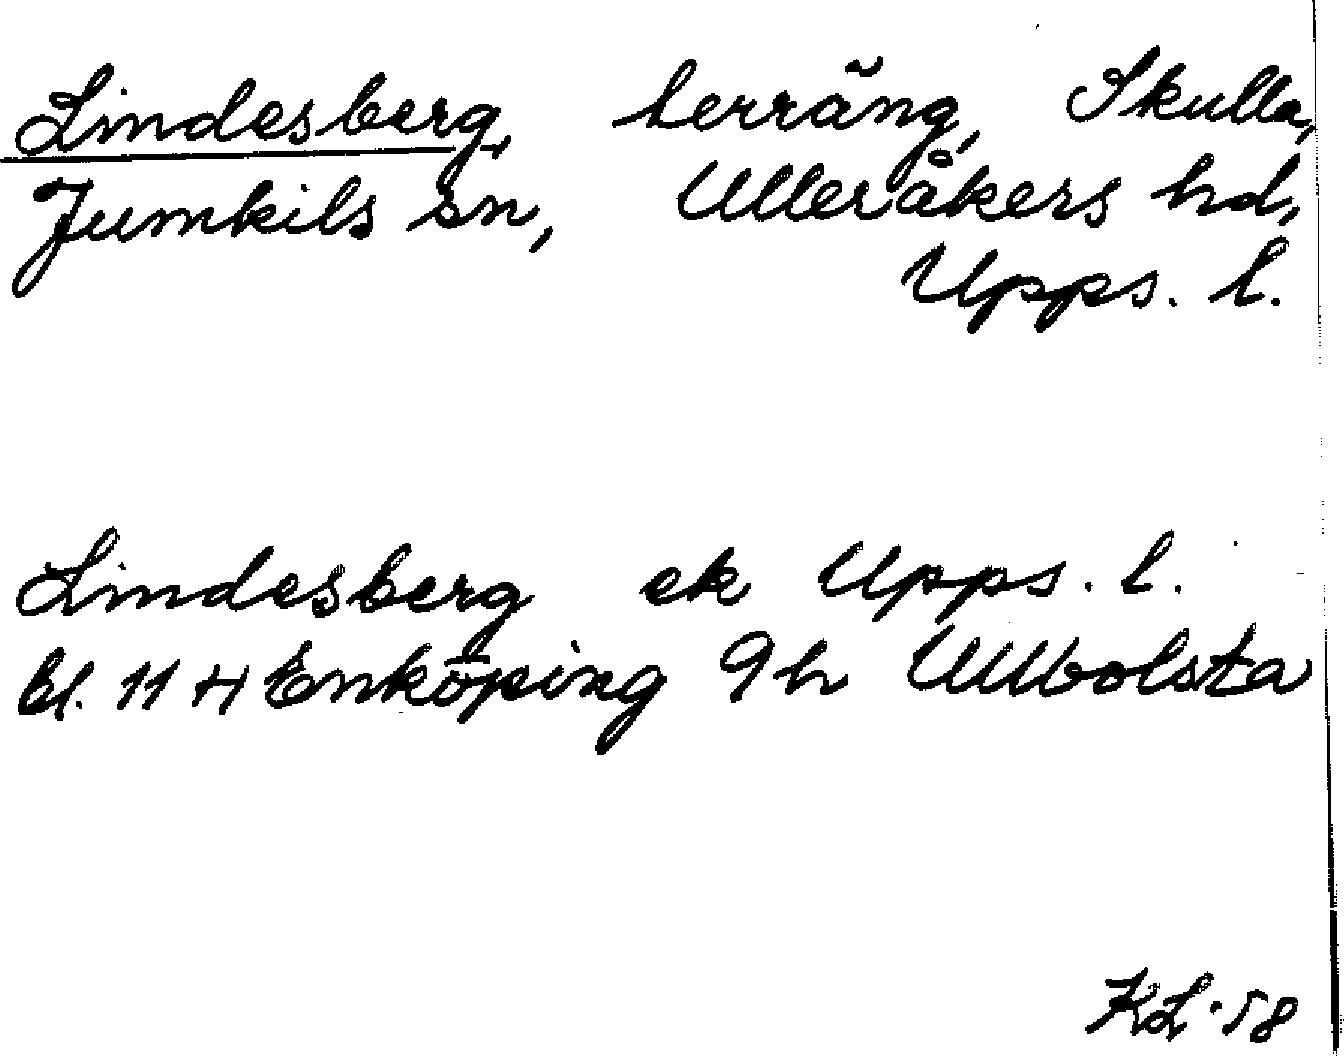 Lindesberg, herräng, Skulla,
Jumkils sn, Ulleråkers hd,
Upps. l.
Lindesberg ek Upps. l.
bl. 11 H Enköping 9 h Ullbolsta
KL. 58